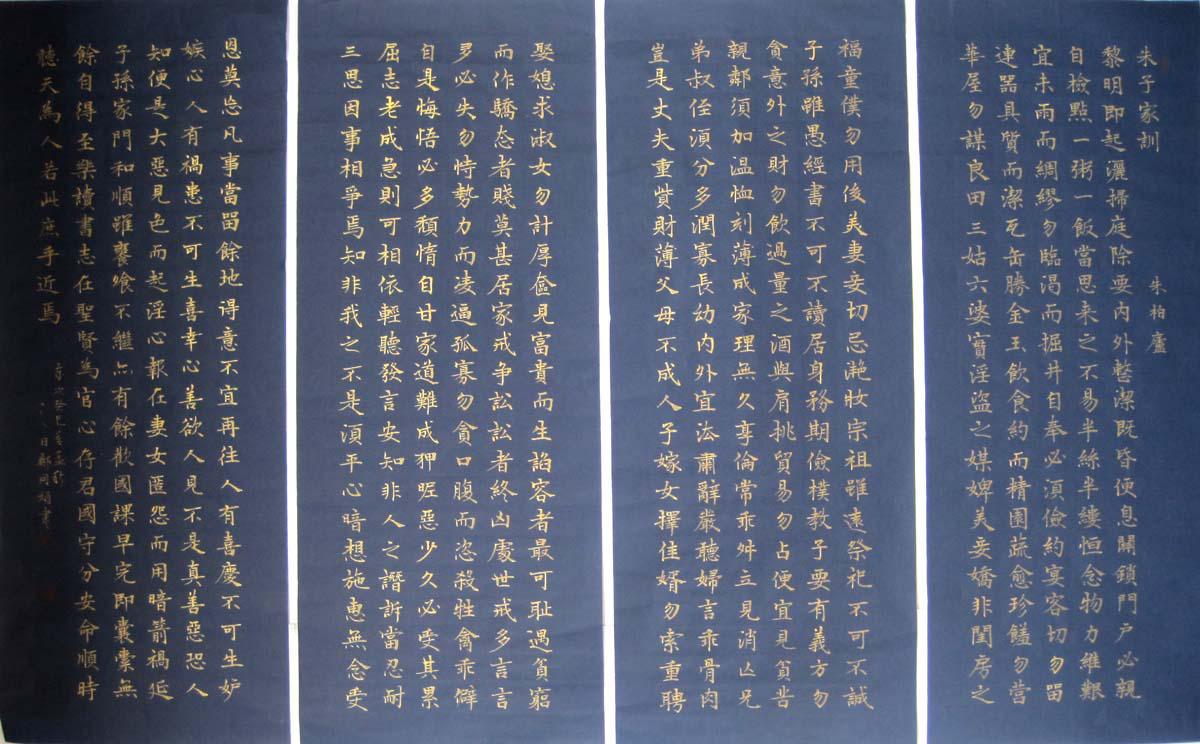 朱子家訓
朱柏廬
黎明即起灑掃庭除要內外整潔既昏便息關鎖門户必親
自檢點一粥一飯當思来之不易半絲半縷恒念物力維艱
宜未雨而綢繆勿臨渴而掘井自奉必須儉約宴客切勿留
連器具質而潔瓦缶勝金玉飲食約而精園蔬愈珍饈勿營
華屋勿謀良田三姑六婆實淫盜之媒婢美妾嬌非閨房之
福童僕勿用俊美妻妾切忌艷妝宗祖雖遠祭祀不可不誠
子孫雖愚經書不可不讀居身務期儉樸教子要有義方勿
貪意外之財勿飲過量之酒與肩挑貿易勿占便宜見貧苦
親鄰須加温恤刻薄成家理無久享倫常乖舛立見消亡兄
弟叔侄須分多潤寡長幼内外宜法肅辭嚴聽婦言乖骨肉
豈是丈夫重貲財薄父母不成人子嫁女擇佳婿勿索重聘
娶媳求淑女勿計厚奩見富貴而生諂容者最可耻遇貧窮
而作驕态者賤莫甚居家戒争訟訟者終凶處世戒多言言
多必失勿恃勢力而凌逼孤寡勿貪口腹而恣殺牲禽乖僻
自是悔悟必多頹惰自甘家道難成狎昵惡少久必受其累
屈志老成急則可相依輕聽發言安知非人之譖訴當忍耐
三思因事相爭焉知非我之不是須平心暗想施惠無念受
恩莫忘凡事當留餘地得意不宜再往人有喜慶不可生妒
嫉心人有禍患不可生喜幸心善欲人見不是真善惡恐人
知便是大惡見色而起淫心報在妻女匿怨而用暗箭禍延
子孫家門和順雖饔飧不繼亦有餘歡國課早完即囊橐無
餘自得至樂讀書志在聖賢為官心存君國守分安命順時
聽天為人若此庶乎近焉